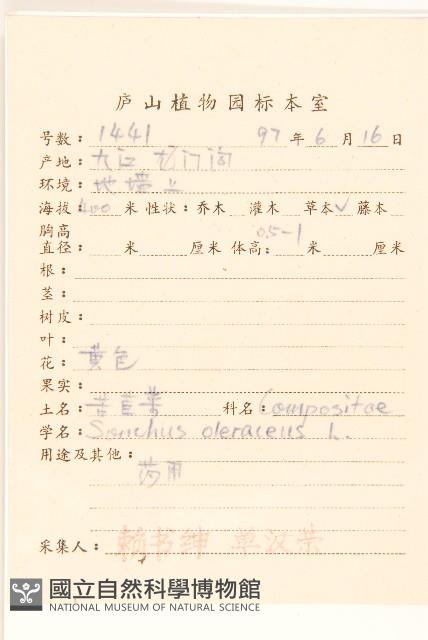 庐山植物园标本室
号数：1441 97年6月16日
产地：九江 龙门沟
环境：地墙上
海拔：400米 性状：乔木 灌木 草本√ 藤本
胸高
直径： 米 厘米 体高：0.5-1米 厘米
根：
茎：
树皮：
叶：
花：黄色
果实：
土名：苦苣菜 科名：Compositae
学名：Sonchus oleraceus L.
用途及其他：
药用
采集人：赖书绅 单汉荣
國立自然科學博物館
NATIONAL MUSEUM OF NATURAL SCIENCE